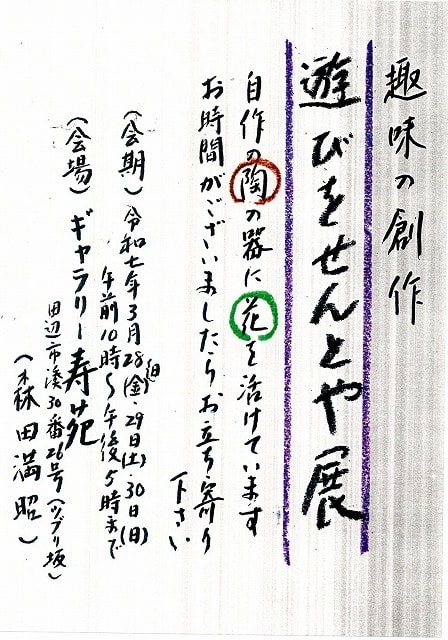 趣味の創作
遊びをせんとや展
自作の陶の器に花を活けています
お時間がございましたらお立ち寄り
下さい
(会期)令和七年3月28日(金)・29日(土)・30日(日)
午前10時〜午後5時まで
(会場)ギャラリー寿苑
田辺市湊30番26号(ツブリ坂)
(森田満昭)